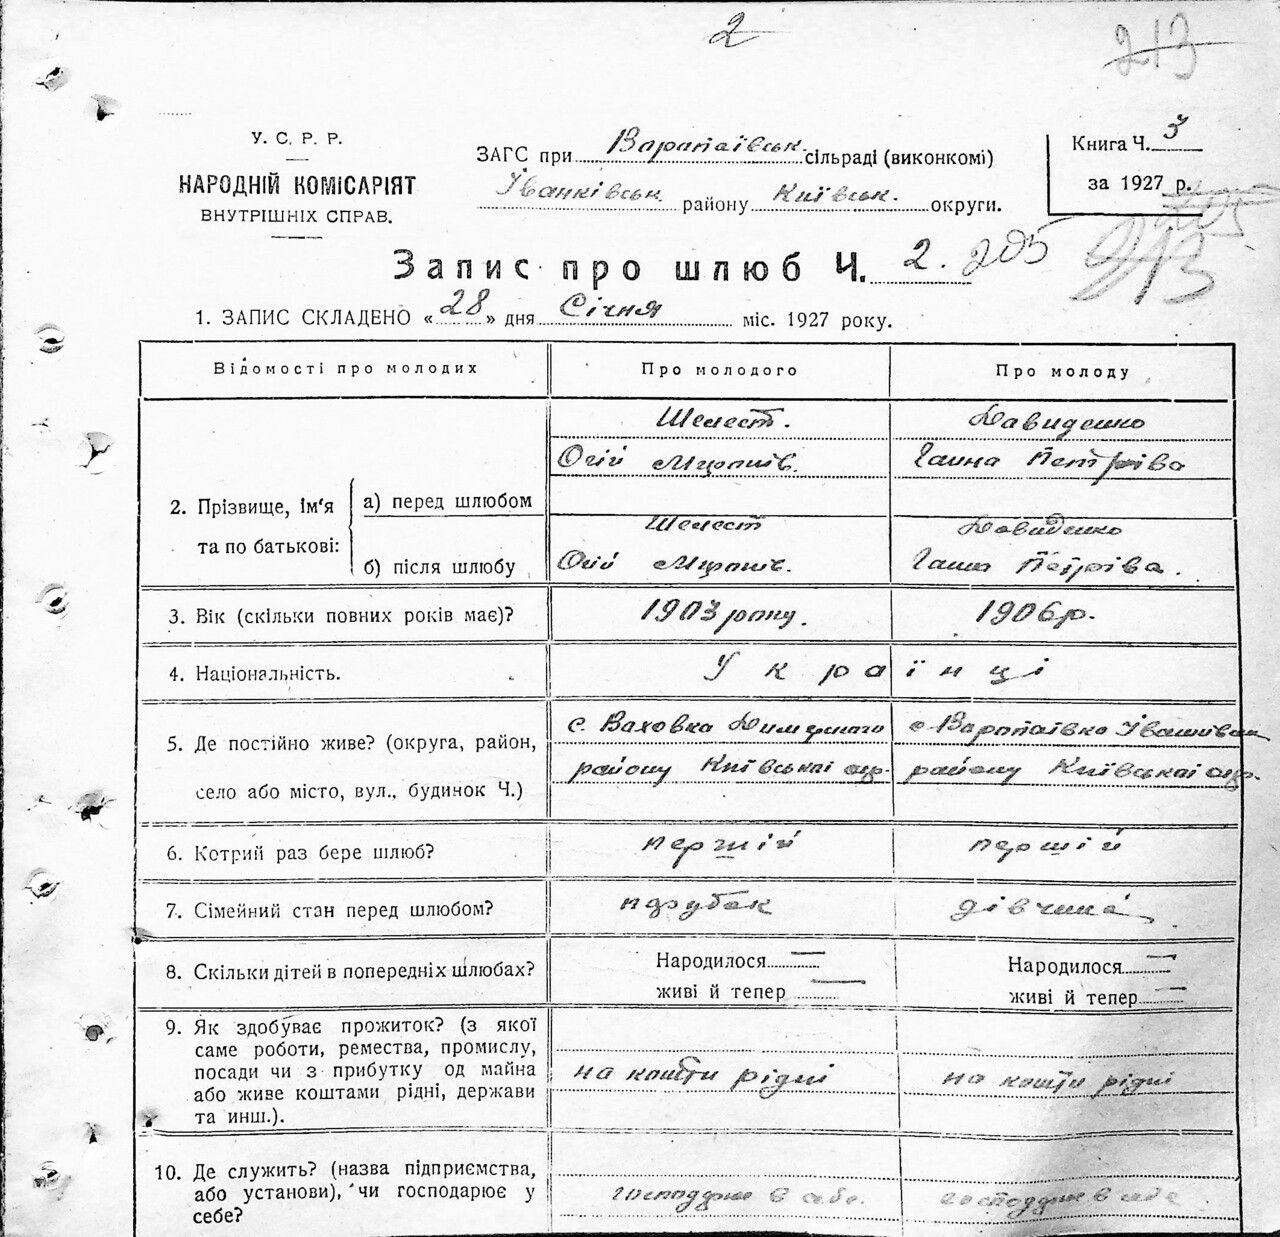 2
213
У. С. Р. Р.
НАРОДНІЙ КОМІСАРІЯТ
ВНУТРІШНІХ СПРАВ.
ЗАГС при Варпаївськ. сільраді (виконкомі)
Іванківськ. району Київськ. округи.
Книга Ч. 3
за 1927 р.
205
213
Запис про шлюб Ч. 2. 205
1. ЗАПИС СКЛАДЕНО «28» дня Січня міс. 1927 року.
Відомості про молодих
Про молодого
Про молоду
2. Прізвище, ім'я та по батькові:
а) перед шлюбом
Шелест.
Давиденко
Ганна Петрівна
б) після шлюбу
Шелест
Давиденко
Ганна Петрівна.
3. Вік (скільки повних років має)?
1903 року.
1906 р.
4. Національність.
Українці
5. Де постійно живе? (округа, район,
село або місто, вул., будинок Ч.)
с. Ваховка Димерського
району Київської окр.
с. Варпаївка Іванківськ
району Київської окр.
6. Котрий раз бере шлюб?
перший
перший
7. Сімейний стан перед шлюбом?
парубок
дівчина
8. Скільки дітей в попередніх шлюбах?
Народилося —
живі й тепер —
Народилося —
живі й тепер —
9. Як здобуває прожиток? (з якої
саме роботи, ремества, промислу,
посади чи з прибутку од майна
або живе коштами рідні, держави
та инш.).
на кошти рідні
на кошти рідні
10. Де служить? (назва підприємства,
або установи), чи господарює у
себе?
в себе.
в себе